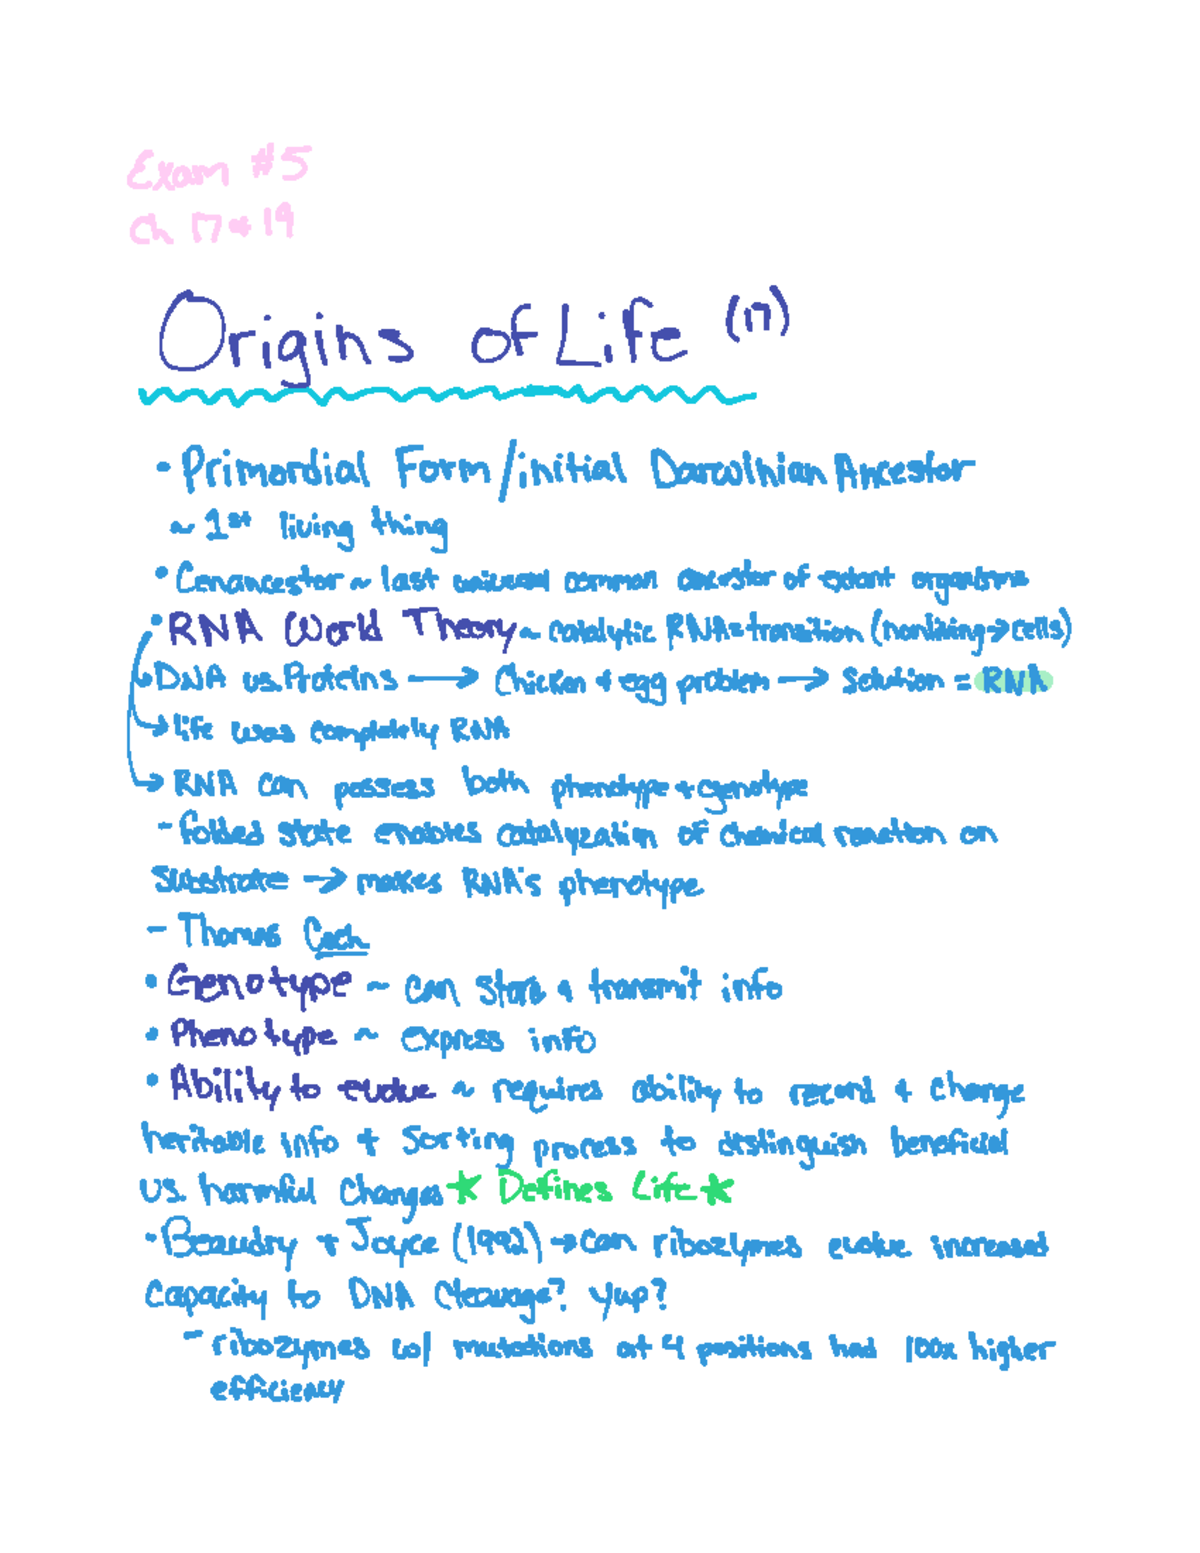 Exam #5
Ch 17 & 19
Origins of Life (17)
• Primordial Form/initial Darwinian Ancestor
~ 1st living thing
• Cenancestor ~ last universal common ancestor of extant organisms
• RNA World Theory ~ catalytic RNA = transition (nonliving → cells)
↳ DNA vs. Proteins → Chicken & egg problem → Solution = RNA
→ life was completely RNA
→ RNA can possess both phenotype + genotype
- folded state enables catalyzation of chemical reaction on
substrate → makes RNA's phenotype
- Thomas Cech
• Genotype ~ can store & transmit info
• Phenotype ~ express info
• Ability to evolve ~ requires ability to record & change
heritable info + sorting process to distinguish beneficial
vs. harmful changes * Defines Life *
• Beaudry + Joyce (1992) → can ribozymes evolve increased
capacity to DNA cleavage? Yup?
- ribozymes w/ mutations at 4 positions had 100x higher
efficiency